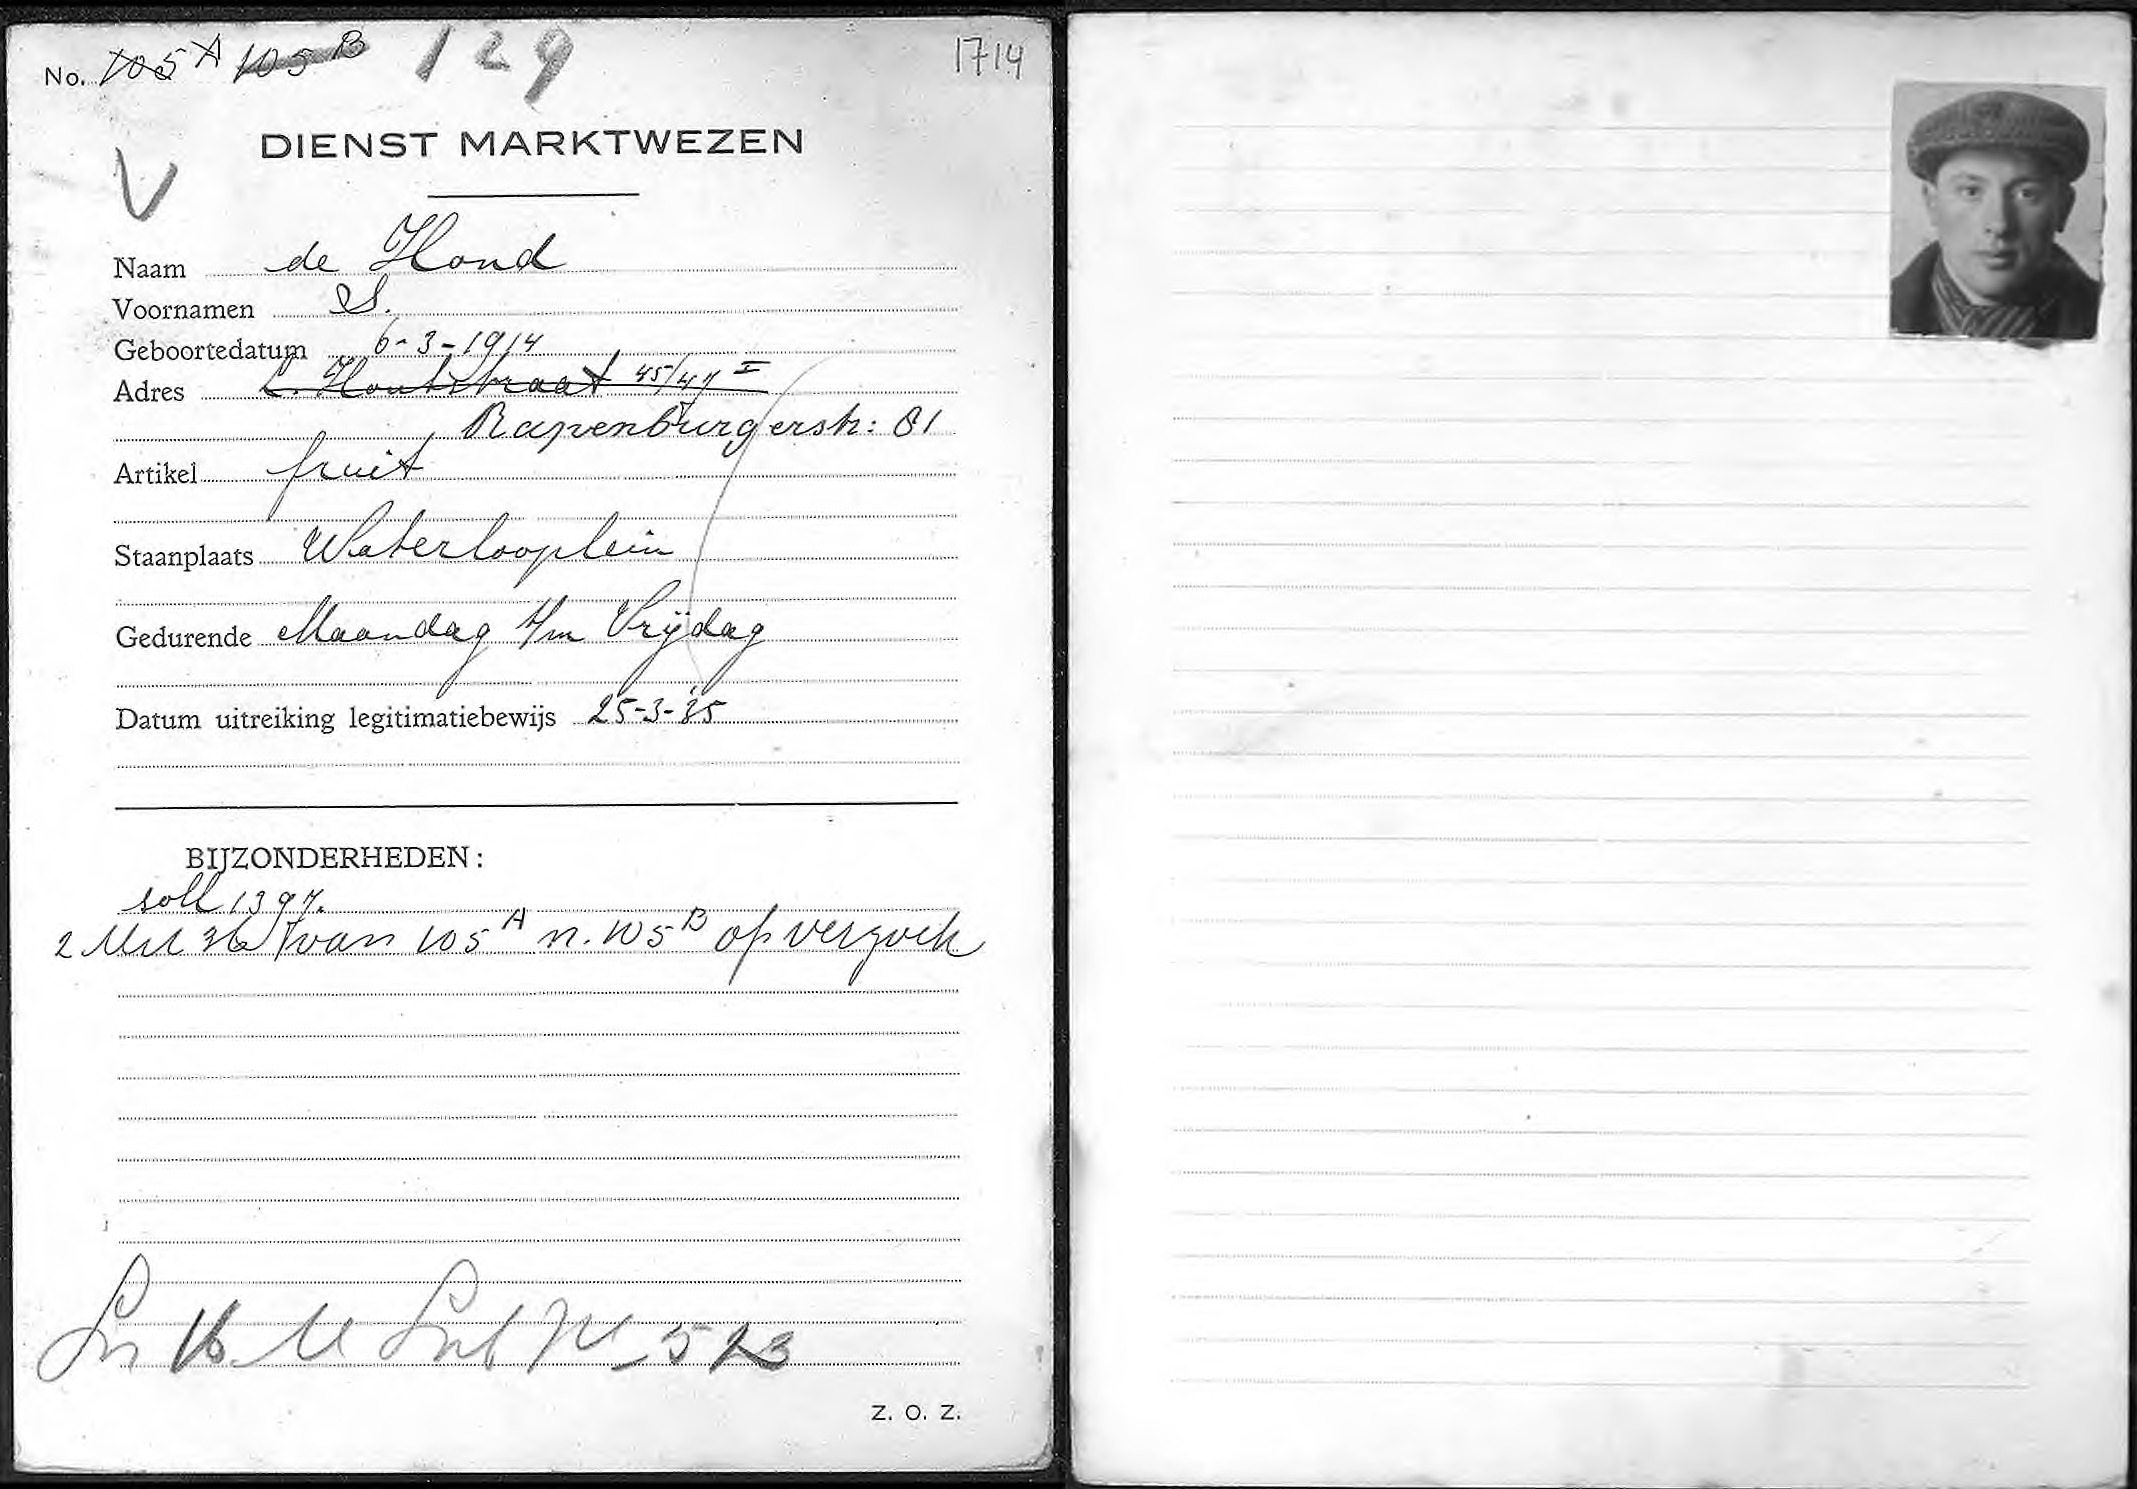 No. 105 A 105 B 129 1714
DIENST MARKTWEZEN
V
Naam de Hond
Voornamen S.
Geboortedatum 6-3-1914
Adres L. Houtstraat 45/47 I
Rapenburgerstr: 81
Artikel fruit
Staanplaats Waterlooplein
Gedurende Maandag t/m Vrijdag
Datum uitreiking legitimatiebewijs 25-3-'35
BIJZONDERHEDEN:
soll 1397.
2 Mrt 36 van 105 A n. 105 B op verzoek
Z. O. Z.